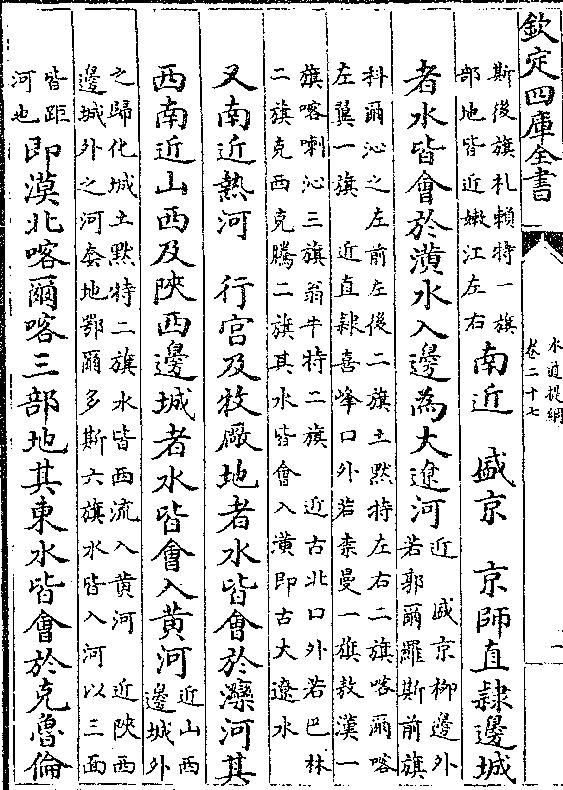 欽定四庫全書
水道提綱
卷二十七
一
斯後旗札頼特一旗
部地皆近嫩江左右
南近　盛京　京師直隷邊城
者水皆會於潢水入邊為大遼河
近　盛京柳邊外
若郭爾羅斯前旗
科爾沁之左前左後二旗土黙特左右二旗喀爾喀
左翼一旗　近直隷喜峰口外若柰曼一旗敖漢一
旗喀喇沁三旗翁牛特二旗　近古北口外若巴林
二旗克西克騰二旗其水皆會入潢即古大遼水
又南近熱河　行宫及牧廠地者水皆會於灤河其
西南近山西及陜西邊城者水皆會入黄河
近山西
邊城外
之歸化城土黙特二旗水皆西流入黄河　近陜西
邊城外之河套地鄂爾多斯六旗水皆入河以三面
皆距
河也
即漠北喀爾喀三部地其東水皆會於克魯倫